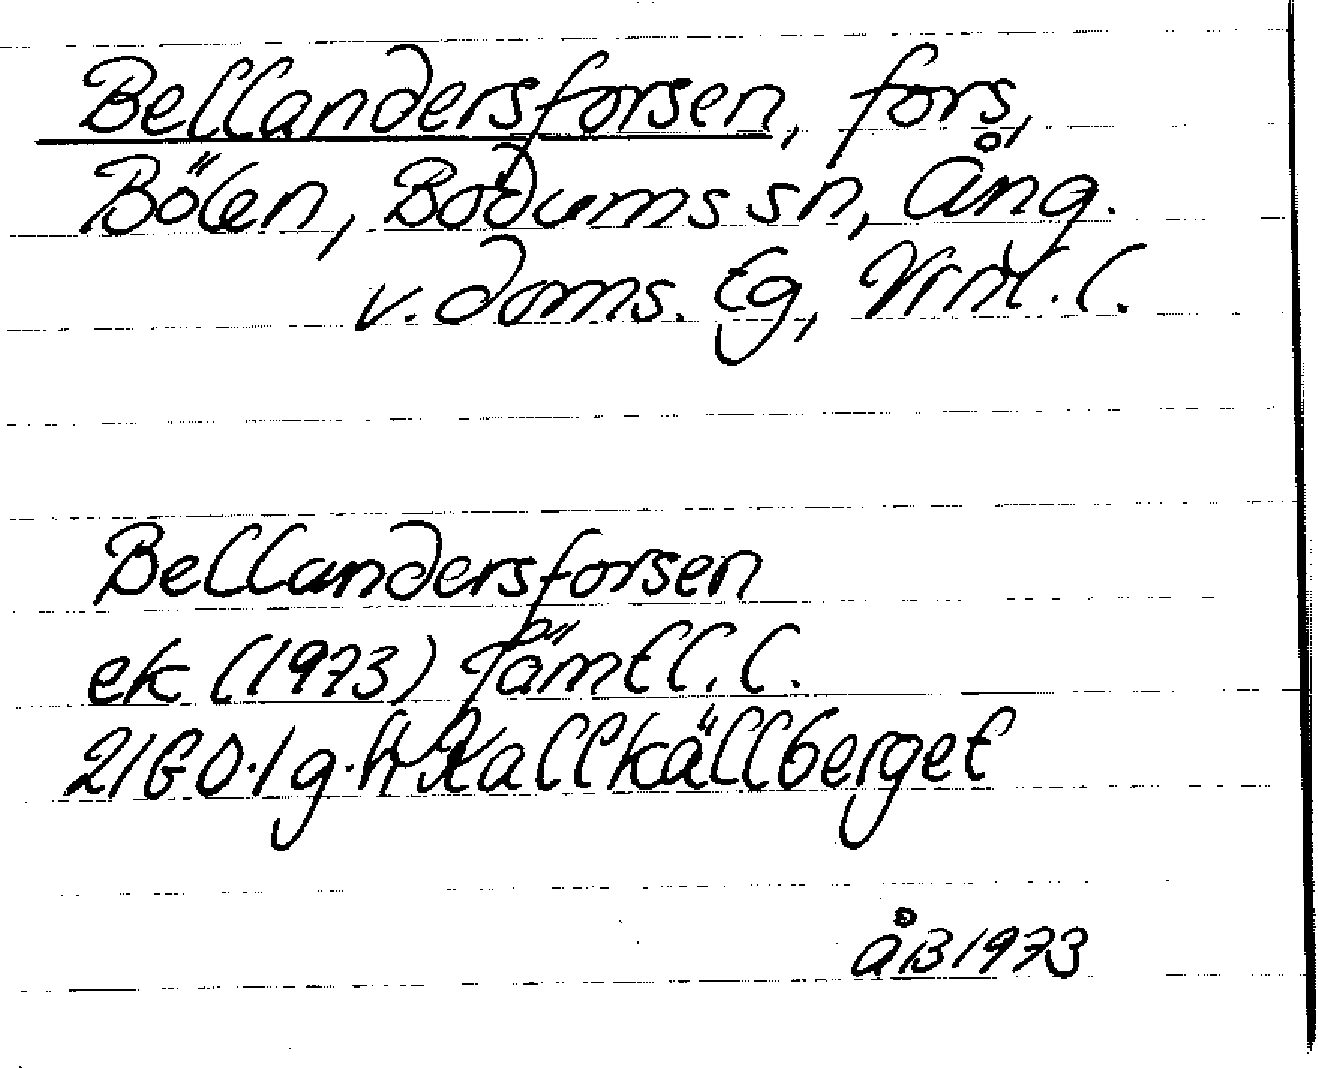 Bellandersforsen, fors,
Bölen, Bodums sn, Ång.
v. doms. Eg,
Bellandersforsen
ek (1973) Jämtl. l.
21G0.1 g.h Kallkällberget
åB 1973